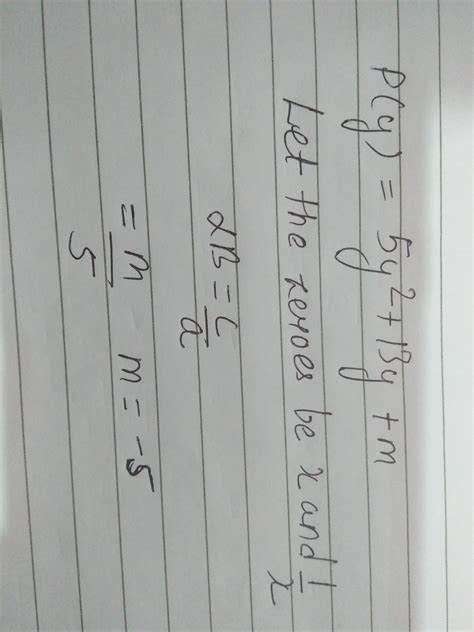 P(y) = 5y² + 13y + m
Let the zeroes be x and 1/x
αβ = c/a
= m/5 m = -5